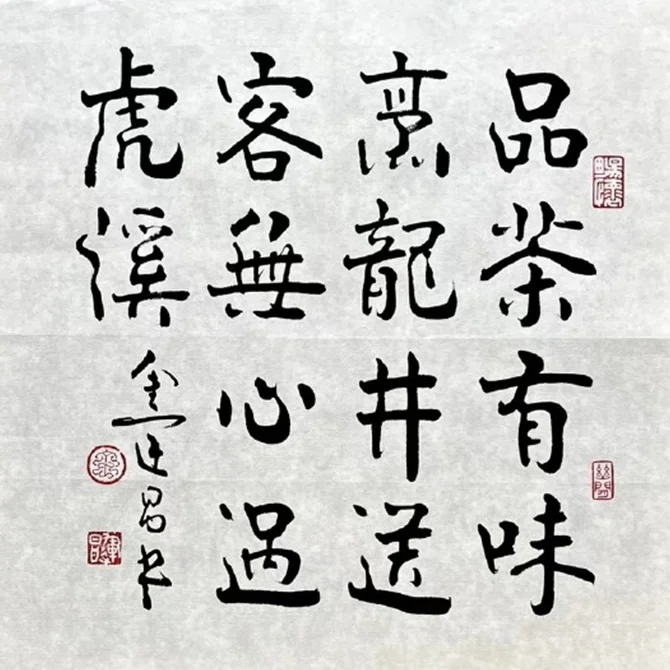 品茶有味
烹龍井送
客無心過
虎溪
書